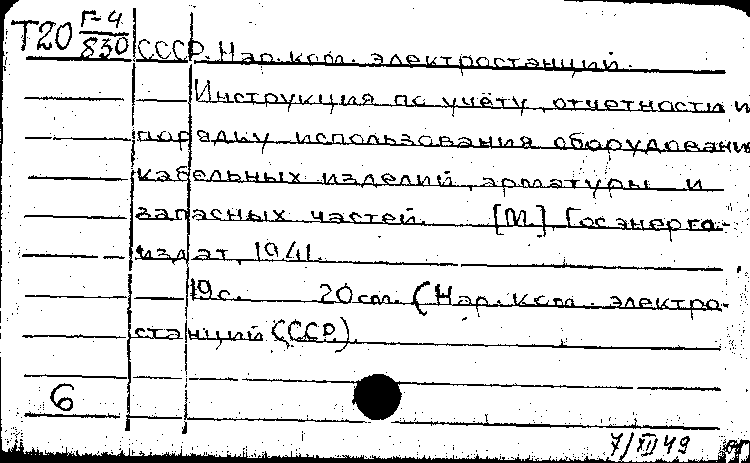 Т20 Г-4/830 СССР. Нар. ком. электростанций.
Инструкция по учёту, отчетности и
порядку использования оборудования
кабельных изделий, арматуры и
запасных частей. [М.] Госэнерго-
издат, 1941.
19с. 20см. (Нар. ком. электро-
станций СССР).
6
7/XII 49